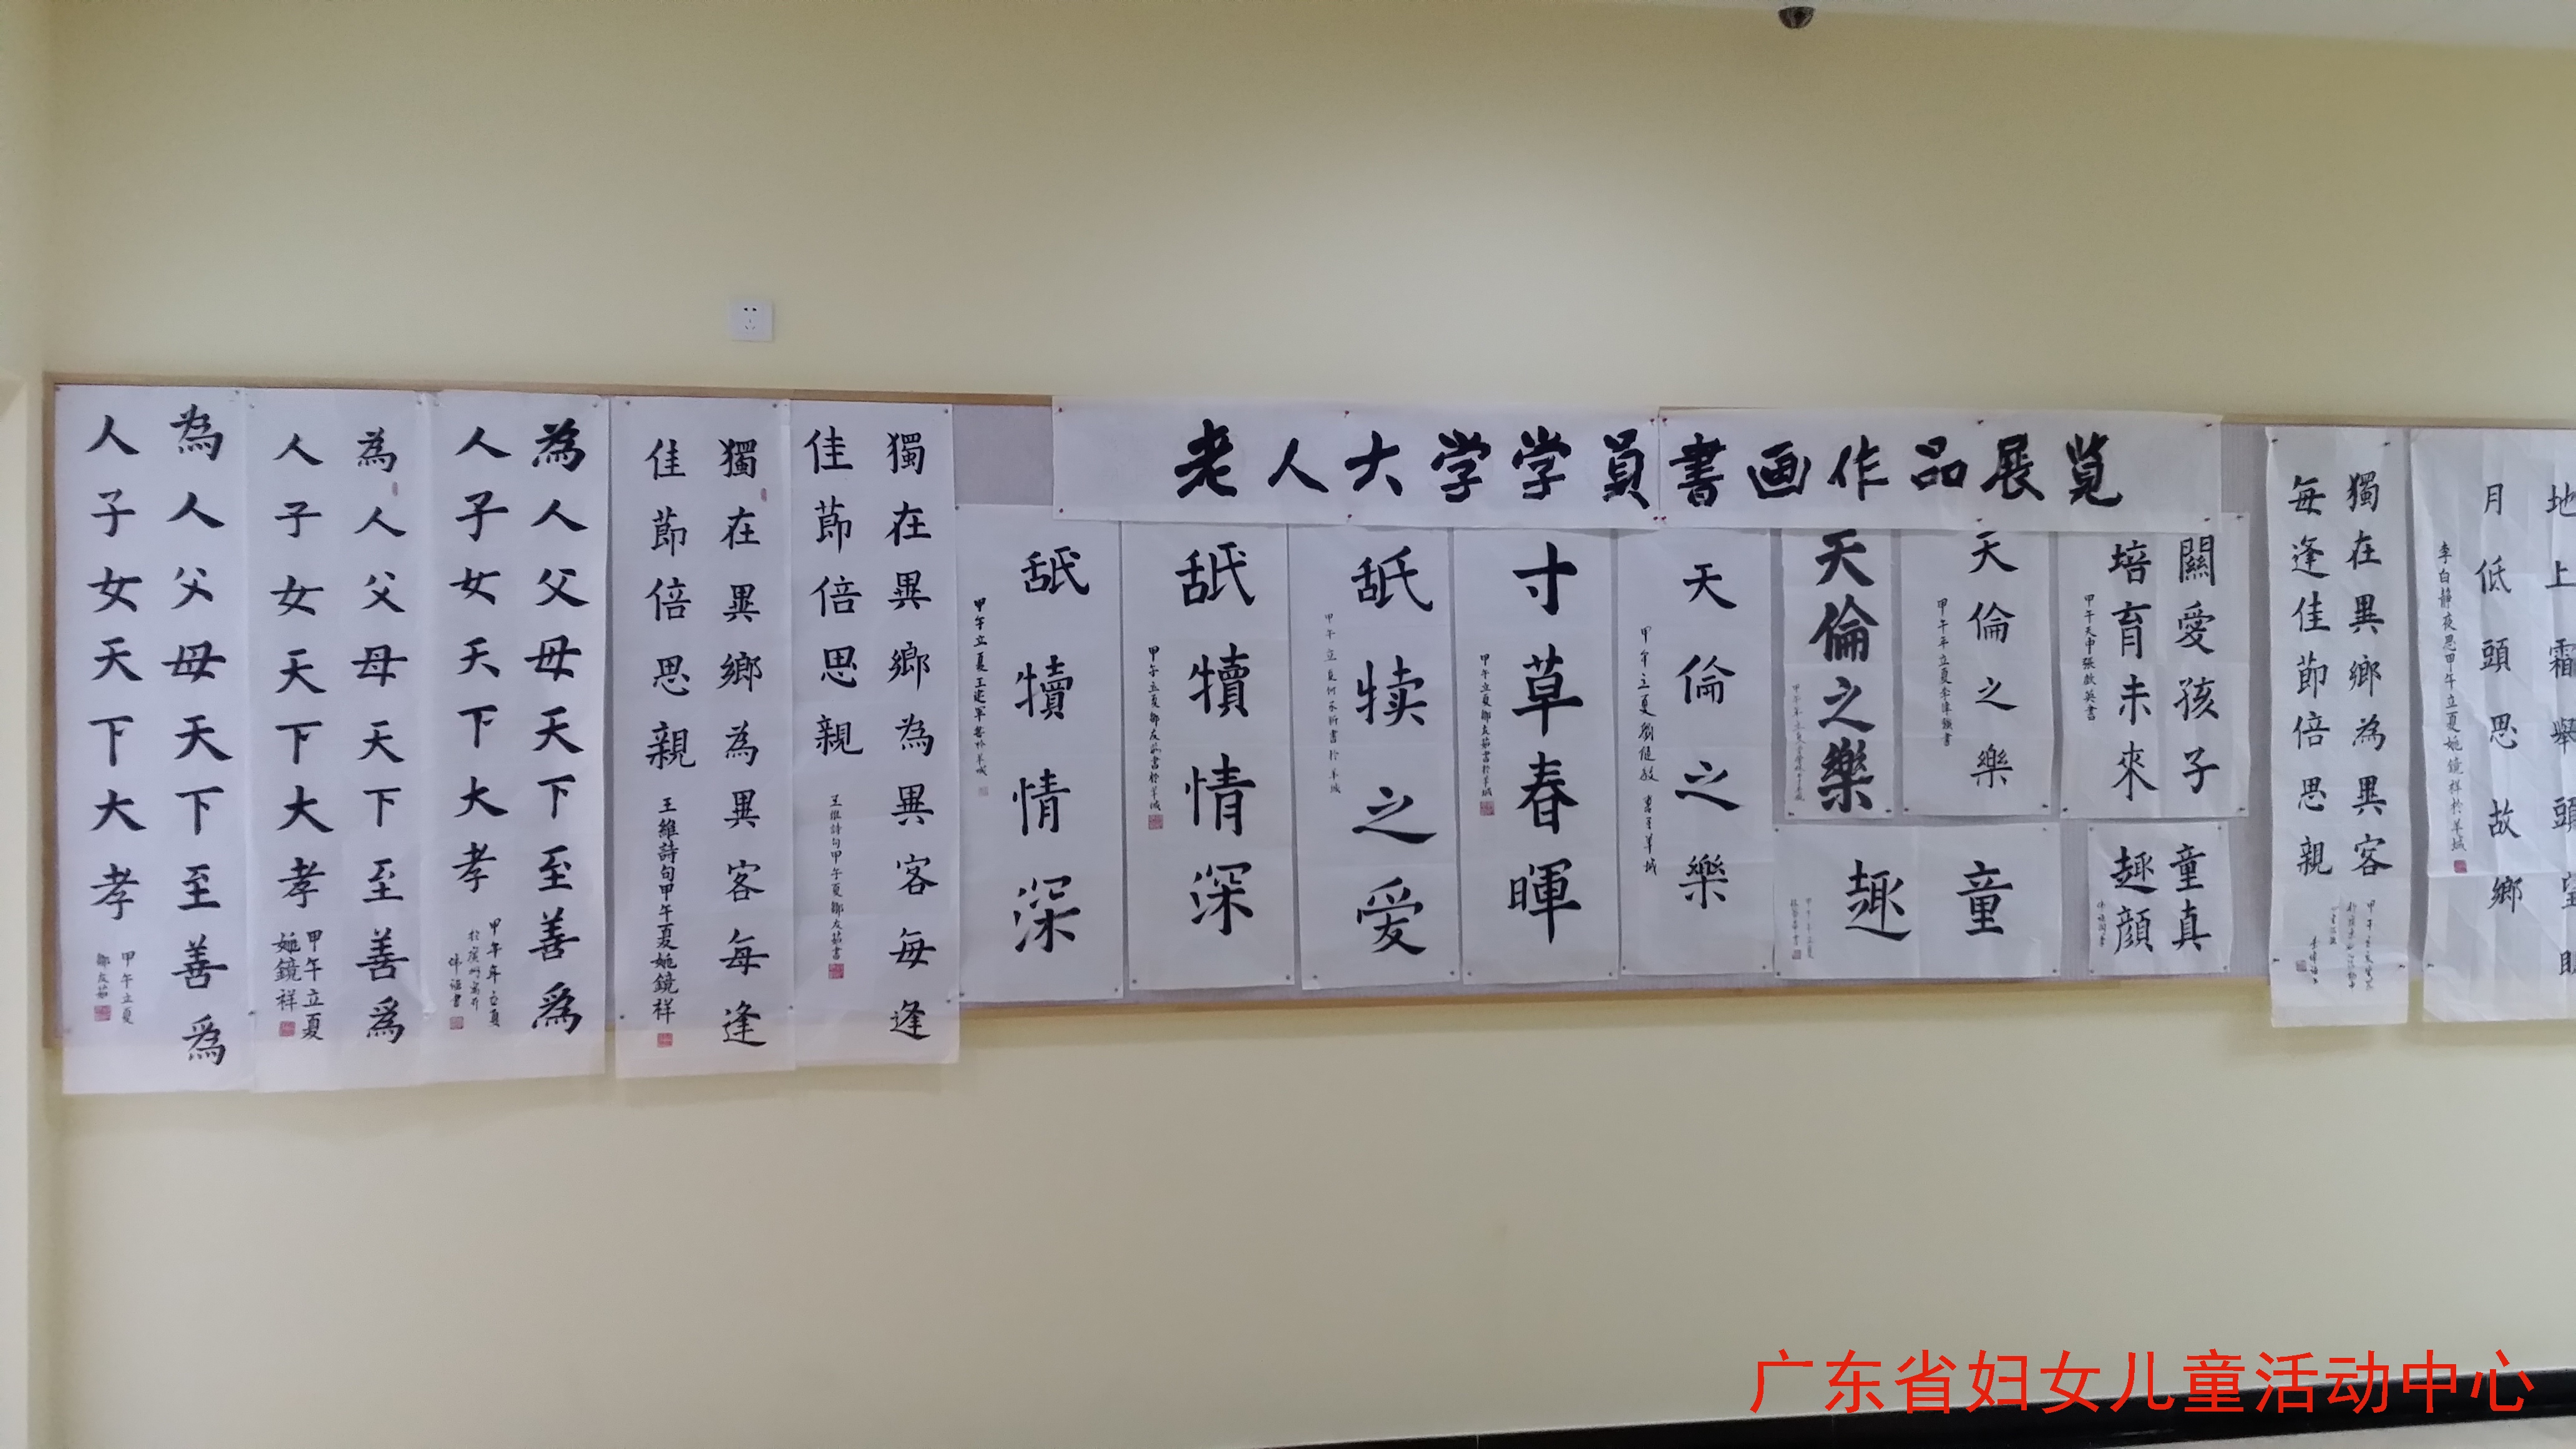 老人大学学員書画作品展覧
為人父母天下至善為
人子女天下大孝
甲午立夏
鄒友茹
為人父母天下至善為
人子女天下大孝
甲午立夏
姚鏡祥
為人父母天下至善為
人子女天下大孝
甲午年立夏
獨在異鄉為異客每逢
佳節倍思親
王維詩句甲午夏姚鏡祥
獨在異鄉為異客每逢
佳節倍思親
王維詩句甲午夏鄒友茹書
舐犢情深
甲午立夏王建軍書於羊城
舐犢情深
甲午立夏鄒友茹書於羊城
舐犊之愛
甲午立夏何承昕書於羊城
寸草春暉
甲午立夏鄒友茹書於羊城
天倫之樂
甲午立夏劉健敏書于羊城
天倫之樂
天倫之樂
甲午年立夏李偉鏇書
關愛孩子
培育未來
甲午天中張歡英書
童趣
童真
趣顔
獨在異鄉為異客
每逢佳節倍思親
地上霜舉頭望明
月低頭思故鄉
李白靜夜思甲午立夏姚鏡祥於羊城
广东省妇女儿童活动中心